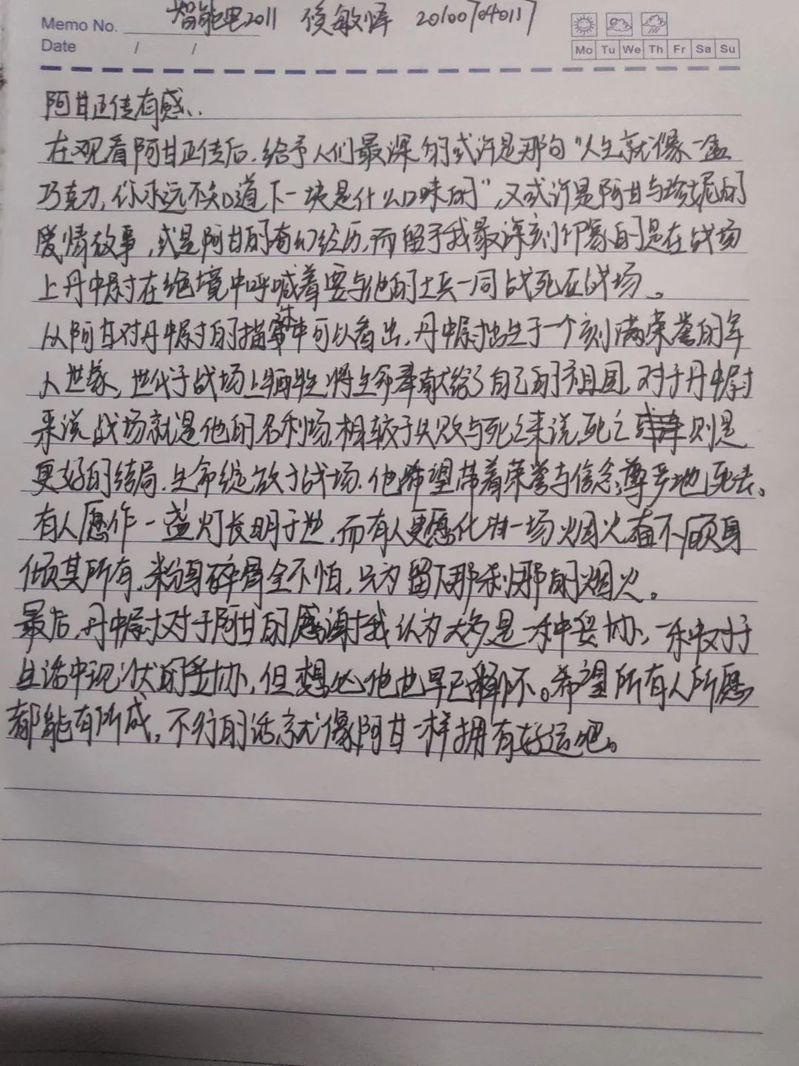 Memo No. 智能电2011 侯敏泽 20100704017
Date / /
Mo Tu We Th Fr Sa Su
阿甘正传有感..
在观看阿甘正传后,给予人们最深的或许是那句"人生就像一盒
巧克力,你永远不知道下一块是什么口味的",又或许是阿甘与珍妮的
爱情故事,或是阿甘的奇幻经历,而留予我最深刻印象的是在战场
上丹中尉在绝境中呼喊着要与他的士兵一同战死在战场。
从阿甘对丹中尉的描述中可以看出,丹中尉出生于一个刻满荣誉的军
人世家,世代于战场上牺牲,将生命奉献给了自己的祖国,对于丹中尉
来说战场就是他的名利场,相较于失败与死之来说,死之则是
更好的结局,生命绽放于战场,他希望带着荣誉与信念,尊严地死去。
有人愿作一盏灯长明于世,而有人更愿化归一场烟火奋不顾身
倾其所有,粉身碎骨全不怕,只为留下那刹那的烟火。
最后,丹中尉对于阿甘的感谢我认为大多是一种妥协,一种对于
生活中现状的妥协,但想必他也早已释怀。希望所有人所愿
都能有所成,不行的话就像阿甘一样拥有好运吧。